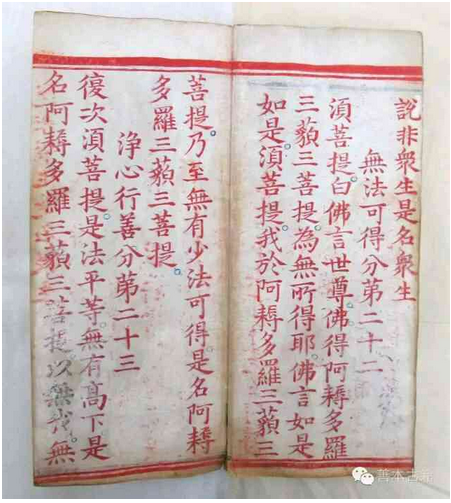 說非衆生是名衆生
無法可得分第二十二
須菩提白佛言世尊佛得阿耨多羅
三藐三菩提為無所得耶佛言如是
如是須菩提我於阿耨多羅三藐三
菩提乃至無有少法可得是名阿耨
多羅三藐三菩提
淨心行善分第二十三
復次須菩提是法平等無有高下是
名阿耨多羅三藐三菩提以無我無
善本古籍